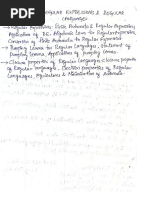 REGULAR EXPRESSIONS & REGULAR
LANGUAGES
→ Regular Expressions, Finite Automata & Regular Expressions,
Application of RE, Algebraic Laws for Regular Expressions,
Conversion of Finite Automata to Regular Expressions.
→ Pumping Lemma for Regular Languages, Statement of
Pumping Lemma, Applications of Pumping Lemma.
→ Closure properties of Regular Languages: Closure properties
of Regular languages, Decision properties of Regular
Languages, Equivalence & Minimization of Automata.